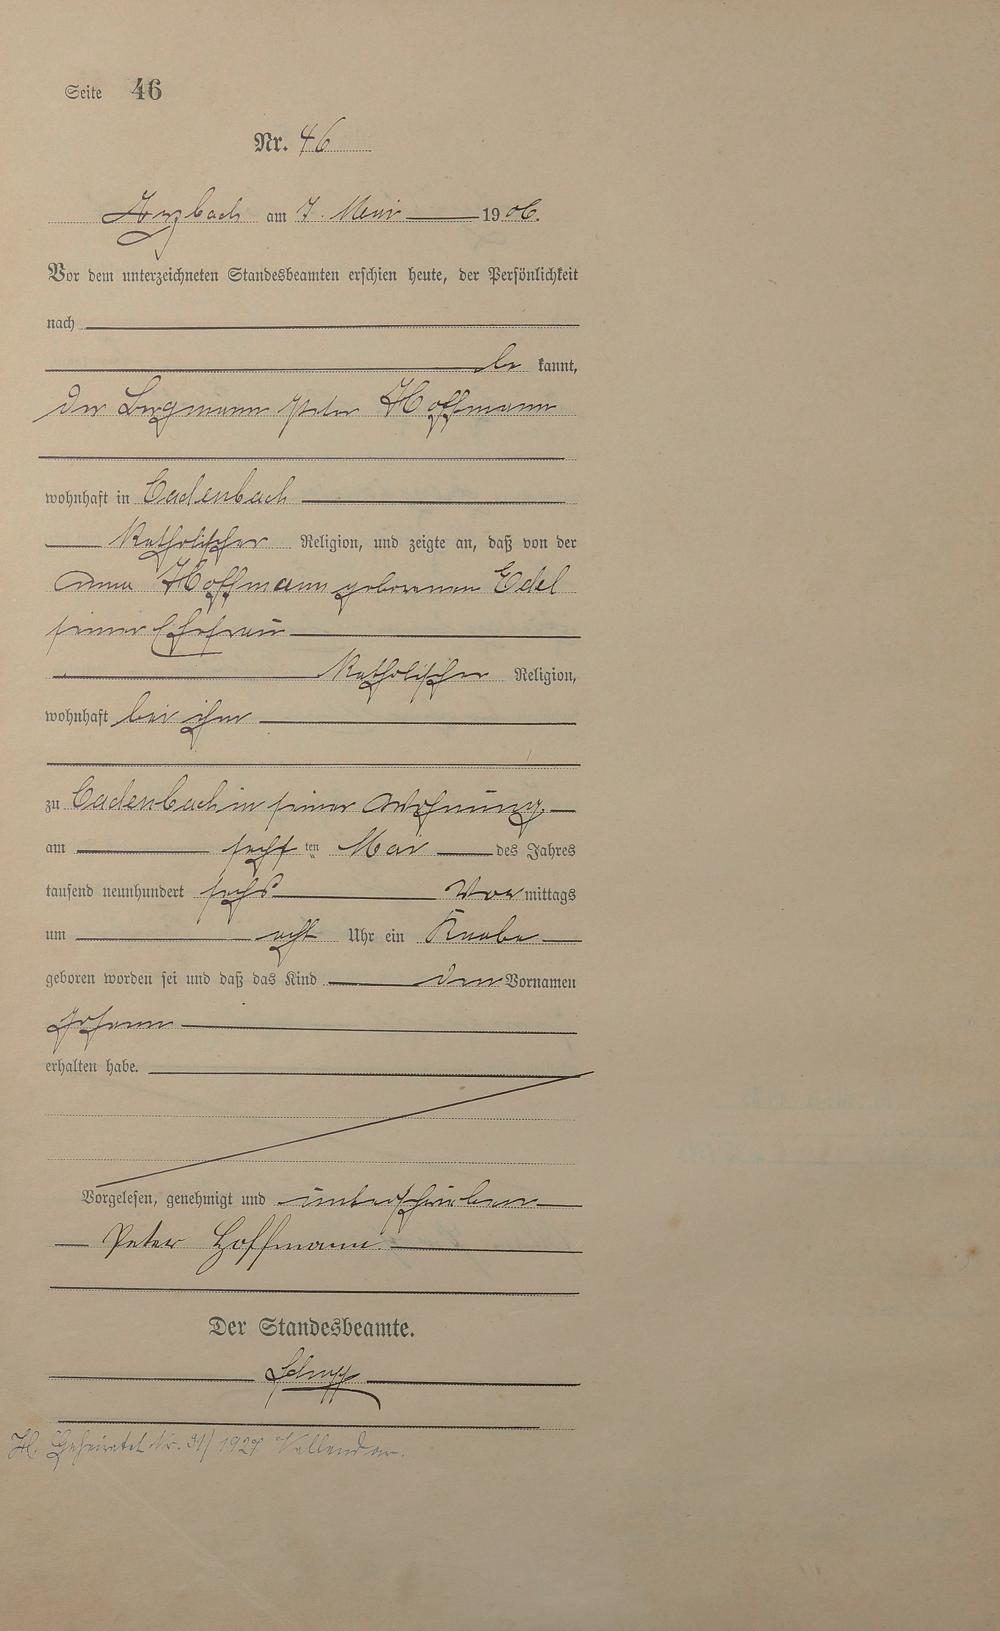 Seite 46
Nr. 46
Arzbach am 7. Mai 1906.
Vor dem unterzeichneten Standesbeamten erschien heute, der Persönlichkeit
nach
be kannt,
der Bergmann Peter Hoffmann
wohnhaft in Cadenbach
katholischer Religion, und zeigte an, daß von der
Anna Hoffmann geborenen Edel
seiner Ehefrau
katholischer Religion,
wohnhaft bei ihm
zu Cadenbach in seiner Wohnung
am sechsten Mai des Jahres
tausend neunhundert sechs Vormittags
um acht Uhr ein Knabe
geboren worden sei und daß das Kind den Vornamen
Johann
erhalten habe.
Vorgelesen, genehmigt und unterschrieben
Peter Hoffmann.
Der Standesbeamte.
H. Geheiratet Nr. 31/1927 Vallendar.